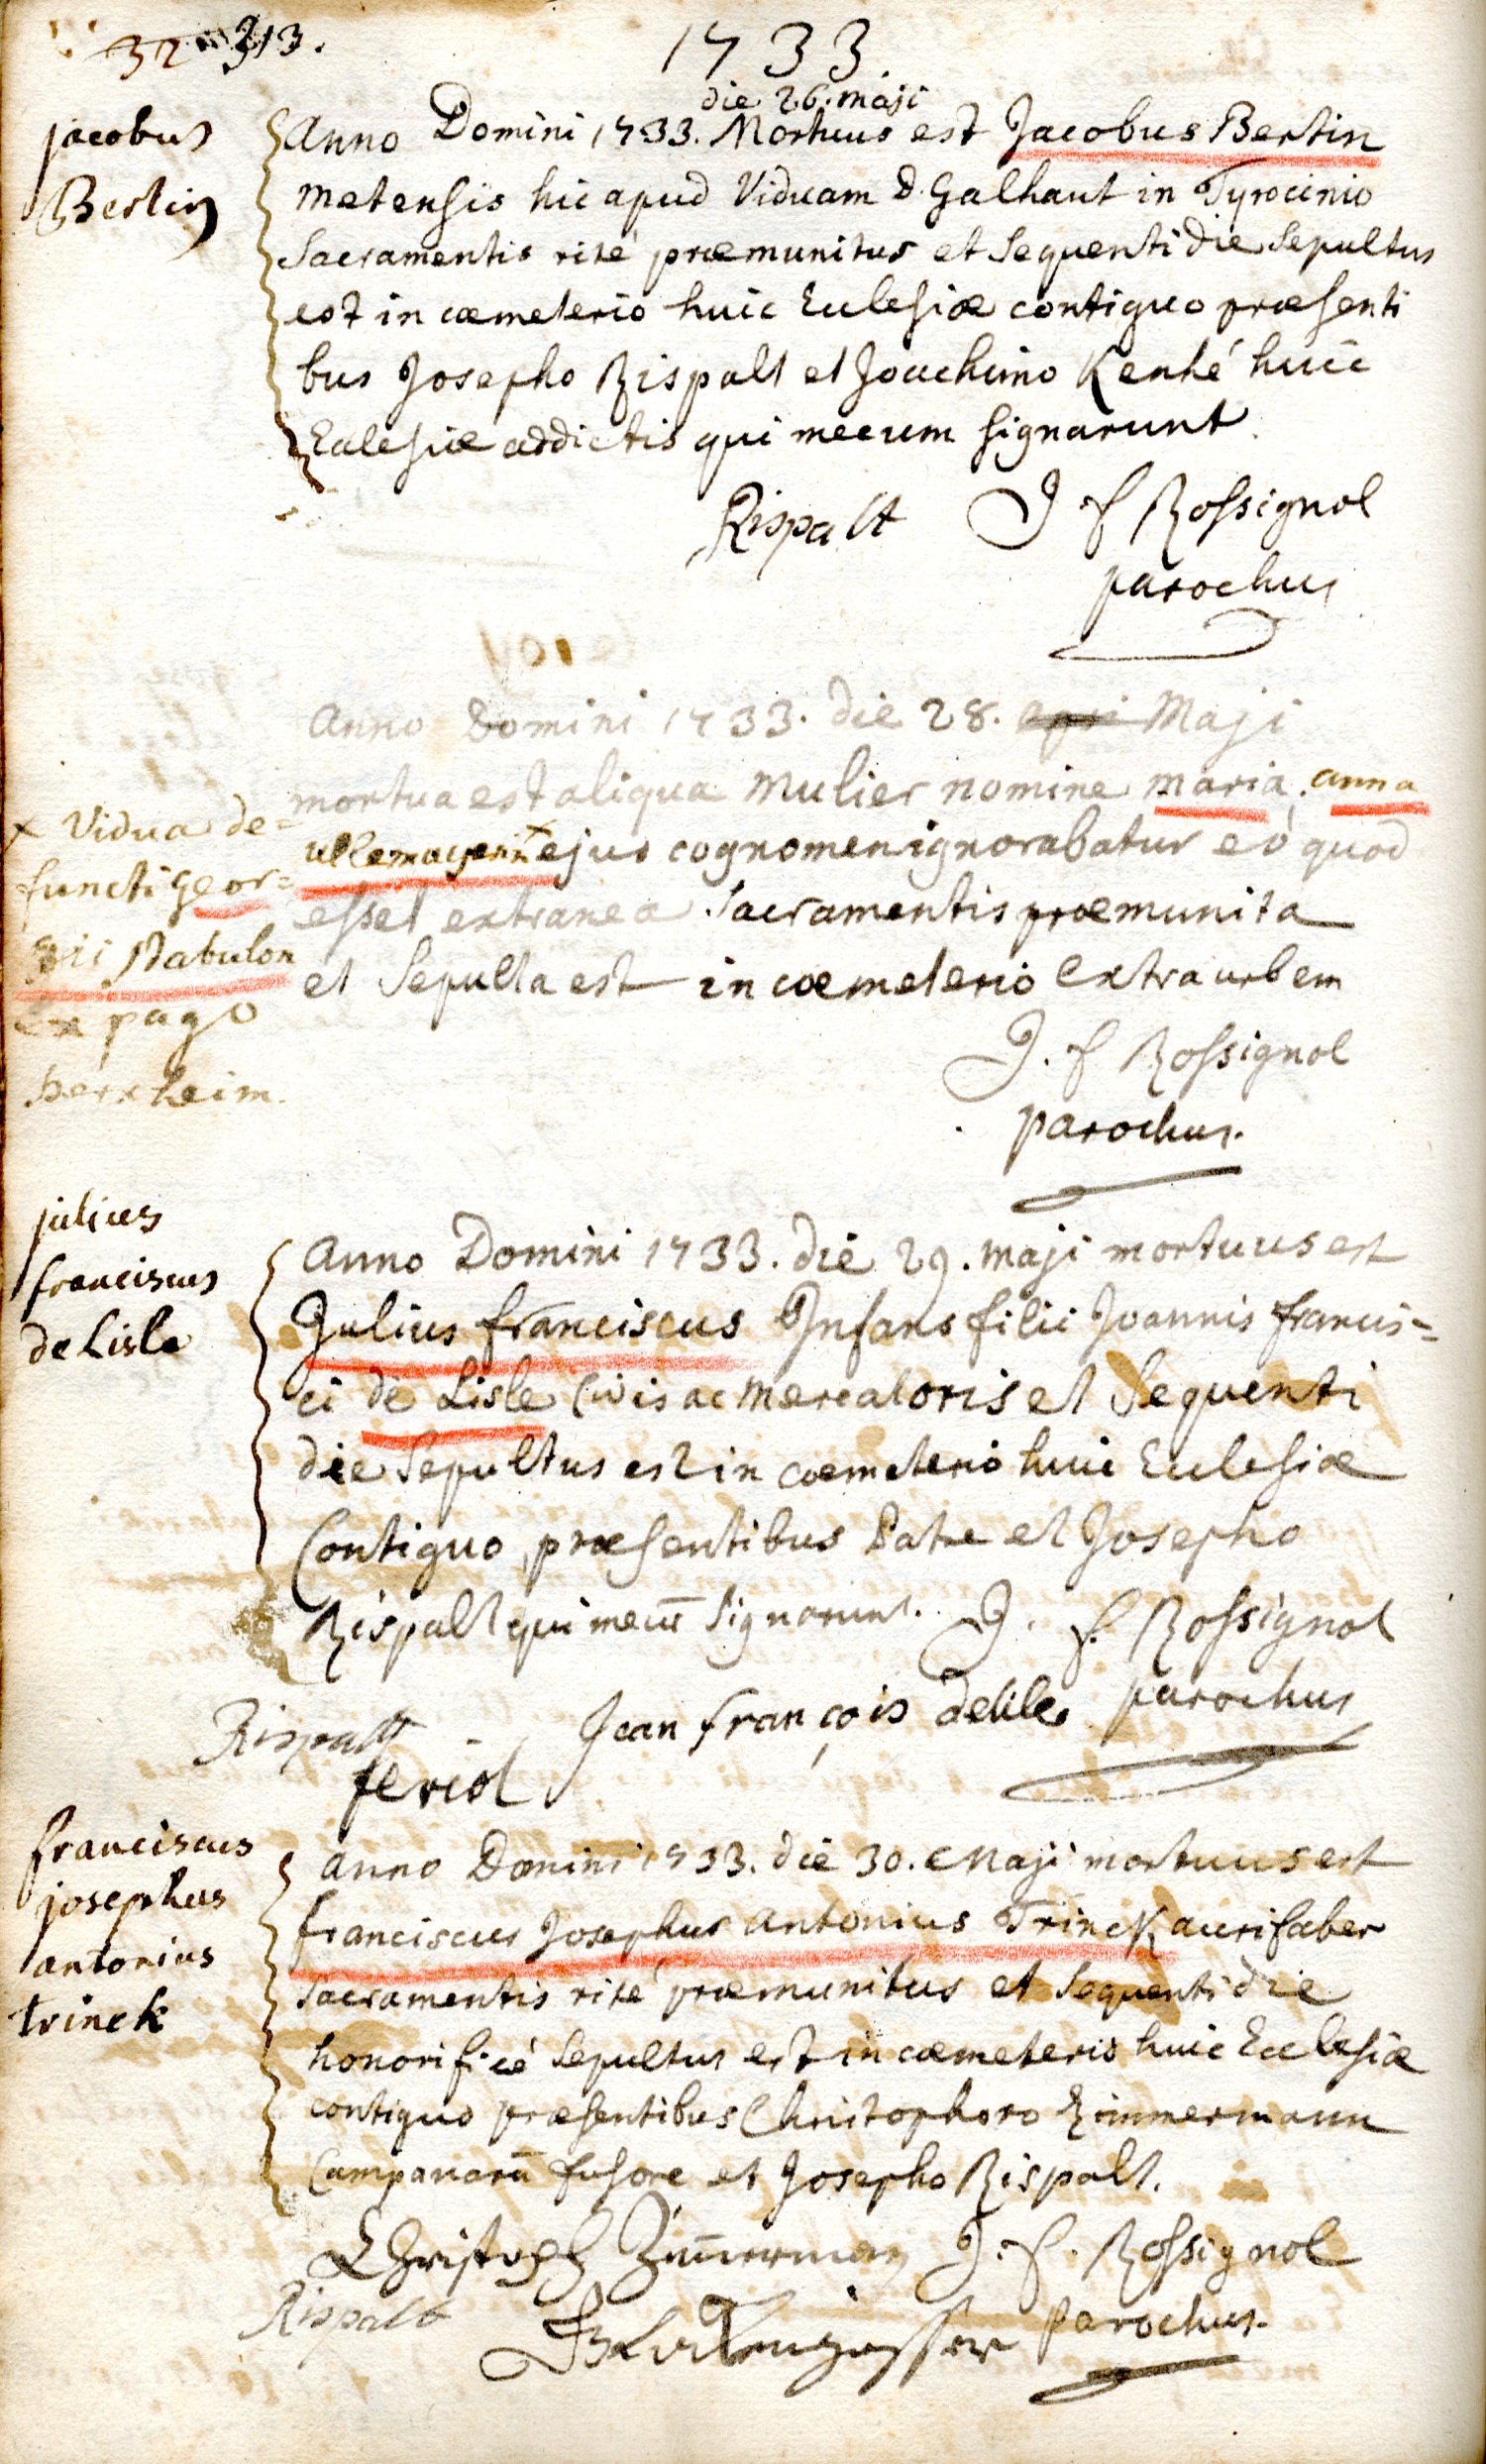 313.
1733
jacobus
Bertin
die 26. maji
Anno Domini 1733. Mortuus est Jacobus Bertin
metensis hic apud Viduam D. Galhaut in Tyrocinio
Sacramentis rité præmunitus et Sequenti die Sepultus
est in cœmeterio huic Ecclesiæ contiguo præsenti
bus Josepho Rispalt et Joachimo Kenhé huic
Ecclesiæ addictis qui mecum signarunt.
Rispalt J f Rossignol
parochus
Anno Domini 1733. die 28. Maji
mortua est aliqua Mulier nomine Maria. anna
ejus cognomen ignorabatur eò quod
esset extranea. Sacramentis præmunita
et Sepulta est in cœmeterio extra urbem
x Vidua de=
functi geor=
gii Nabulon
ex pago
herxheim.
J. f Rossignol
parochus.
julius
franciscus
de Lisle
Anno Domini 1733. die 29. maji mortuus est
Julius franciscus Infans filii Joannis francis=
ci de Lisle Civis ac Mercatoris et Sequenti
die Sepultus est in cœmeterio huic Ecclesiæ
Contiguo, præsentibus Patre et Josepho
Rispalt qui mecū Signarunt. J. f. Rossignol
Rispalt Jean françois delile parochus
feriol
franciscus
josephus
antonius
trinck
Anno Domini 1733. die 30. Maji mortuus est
franciscus Josephus Antonius Trinck aurifaber
Sacramentis rité præmunitus et Sequenti die
honorificé Sepultus est in cœmeterio huic Ecclesiæ
contiguo præsentibus Christophoro Zimmermann
Campanarū fusore et Josepho Rispalt.
Christoph Zim̄erman J. f. Rossignol
Rispalt parochus.